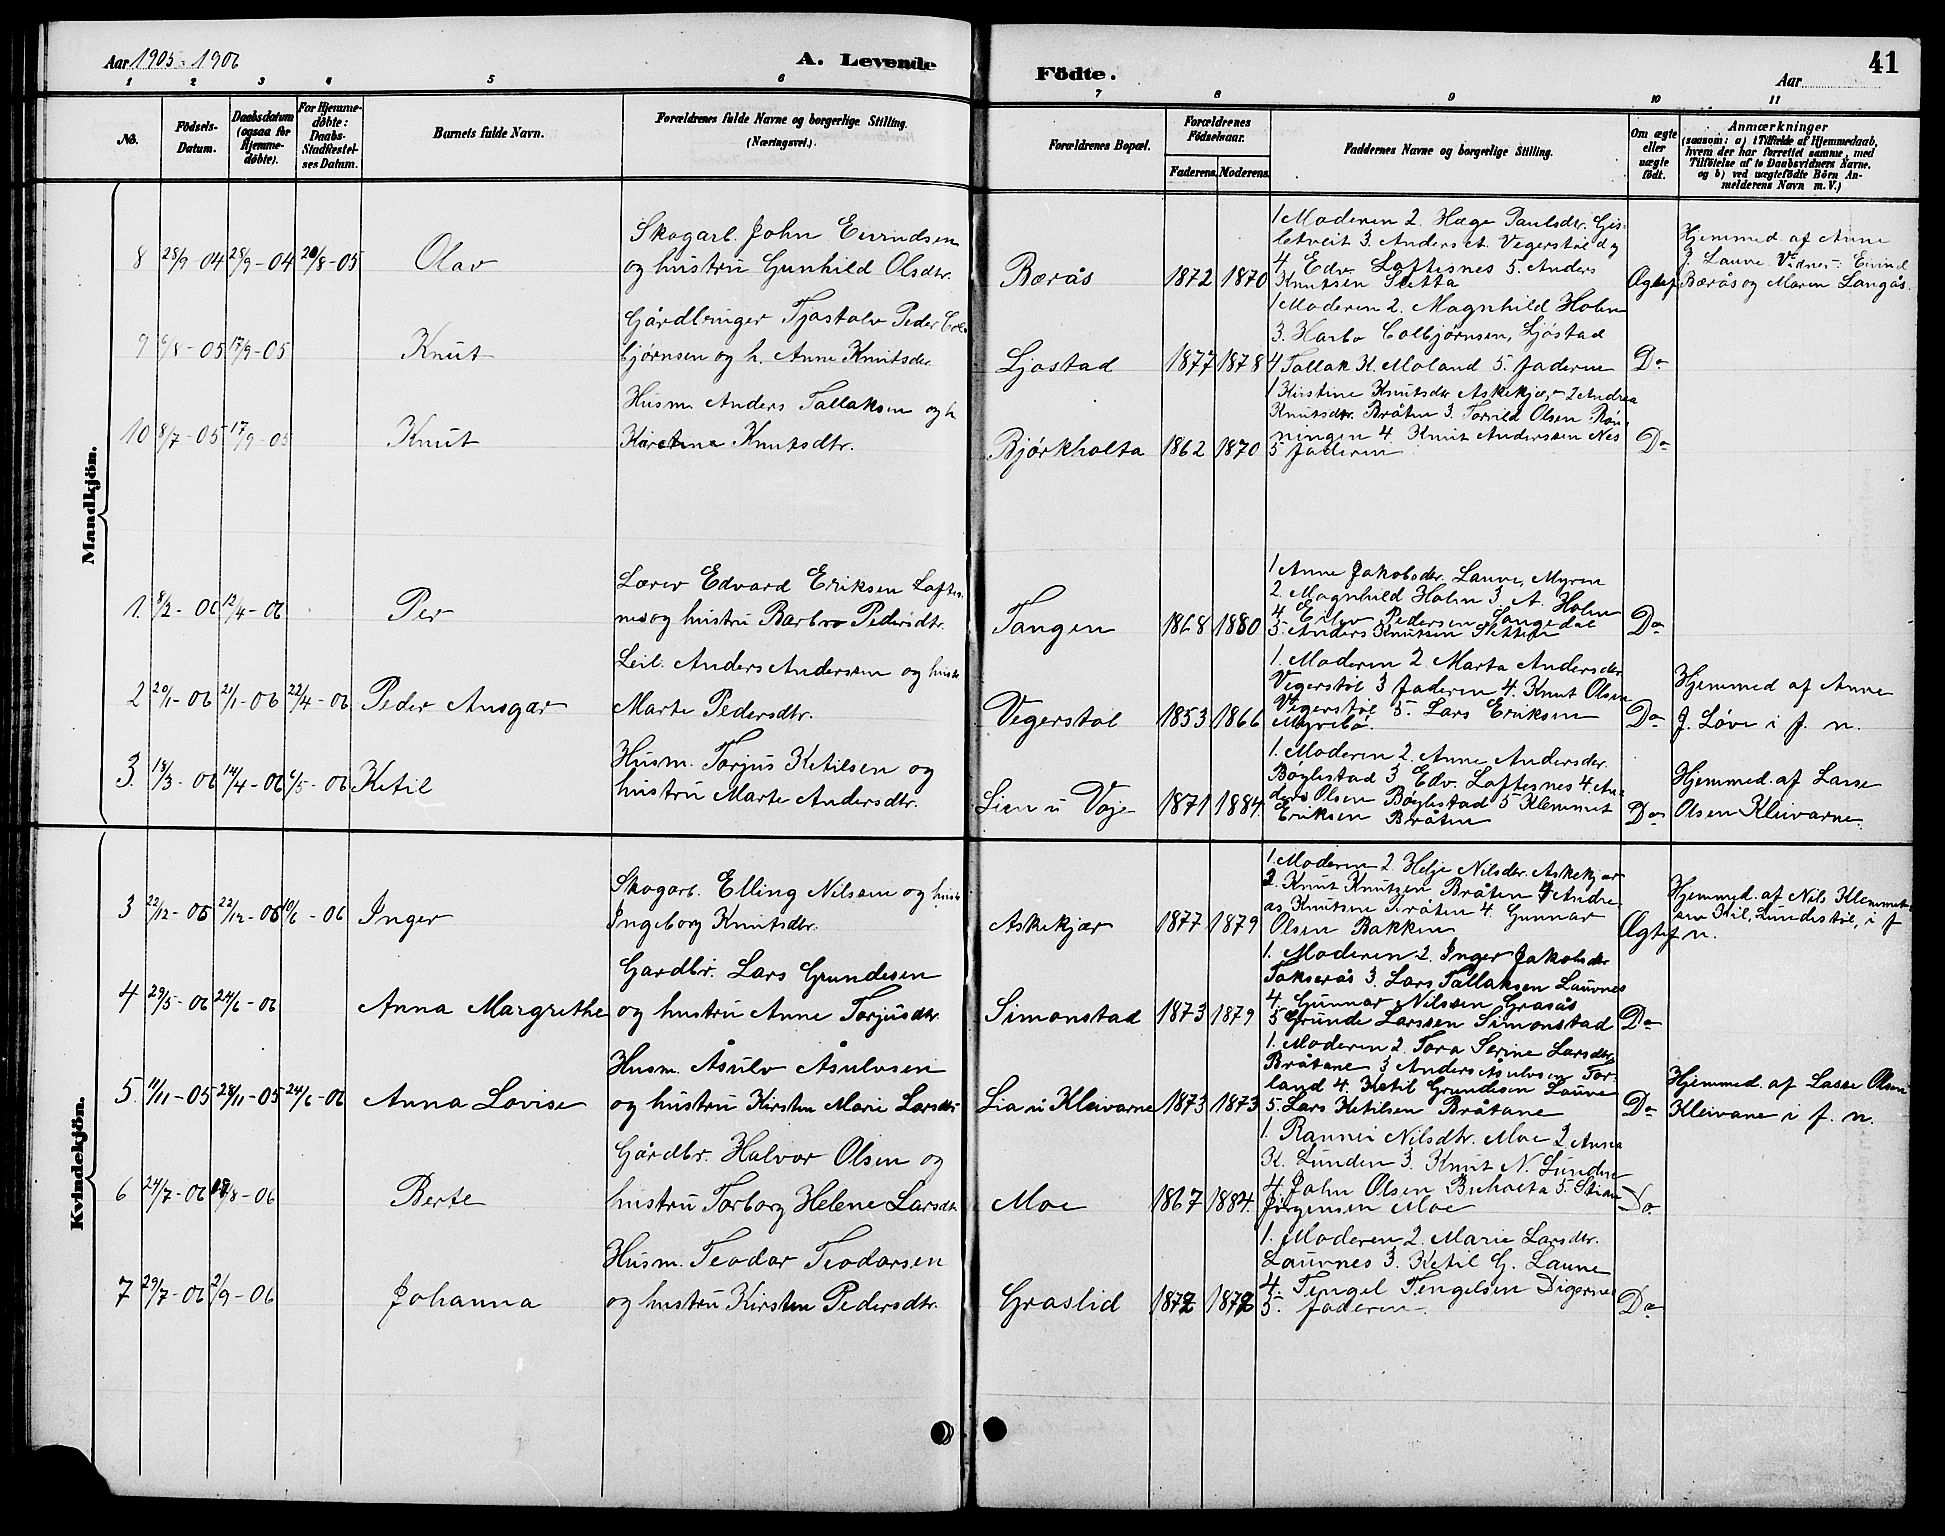 Aar 1905-1906
A. Levende
Födte.
Aar
41
1 2 3 4 5 6 7 8 9 10 11
No.
Födsels-
Datum.
Daabsdatum
(ogsaa for
Hjemme-
döbte).
For Hjemme-
döbte:
Daabs-
Stadfæstel-
ses Datum.
Barnets fulde Navn.
Forældrenes fulde Navne og borgerlige Stilling.
(Næringsvei.)
Forældrenes Bopæl.
Forældrenes
Födselsaar.
Faderens. Moderens.
Faddernes Navne og borgerlige Stilling.
Om ægte
eller
uægte
födt.
Anmærkninger
(saasom: a) i Tilfælde af Hjemmedaab,
hvem der har forrettet samme, med
Tilföielse af to Daabsvidners Navne,
og b) ved uægtefödte Börn An-
melderens Navn m. V.)
Mandkjön.
8 28/9-04 28/9-04 20/8-05 Olav
Skogarb. John Eivindsen
og hustru Gunhild Olsdtr.
Bærås 1872 1870
1 Moderen 2. Hæge Paulsdtr. Gis-
letveit 3. Anders A. Vegerstøl og
4. Edv. Loftesnes 5. Anders
Knutsen Sletta
Ægtef
Hjemmed. af Anne
J. Lauve Vidnes: Eivind
Bærås og Maren Langås.
9 6/8-05 17/9-05 Knut
Gårdbruger Tjøstolv Peder Col-
bjørnsen og h. Anne Knutsdtr.
Ljøstad 1877 1878
1 Moderen 2. Magnhild Holm
3. Karbo Colbjørnsen, Ljøstad
4 Tallak K. Moland 5. faderen
Do
10 8/7-05 17/9-05 Knut
Husm. Anders Tallaksen og h
Knutsdtr.
Bjørkholta 1862 1870
1 Kirstine Knutsdtr Askekjær 2 Andrea
Knutsdtr. Bråten 3. Torvild Olsen Røn-
ningen 4. Knut Anderssen Nes
5 faderen
Do
1. 8/2-06 12/4-06 Per
Lærer Edvard Eriksen Loftes-
nes og hustru Barbro Pedersdtr.
Tangen 1868 1880
1 Anne Jakobsdtr. Lauve, Myren
2. Magnhild Holm 3 A. Holm
4. Eilev Pedersen Langedal
5. Anders Knutsen Sletten
Do
2 20/1-06 21/1-06 22/4-06 Peder Ansgar
Leil. Anders Anderssen og hustr
Marte Pedersdtr.
Vegerstøl 1853 1866
1. Moderen 2. Marta Andersdtr
Vegerstøl 3 faderen 4. Knut Olsen
Vegerstøl 5. Lars Eriksen
Myrebø.
Do
Hjemmed af Anne
J. Løve i f. n.
3. 18/3-06 14/4-06 6/5-06 Ketil
Husm. Torjus Ketilsen og
hustru Marte Andersdtr.
Lien u Voje 1871 1884.
1. Moderen 2. Anne Andersdtr.
Bøylestad 3 Edv. Loftesnes 4. An-
ders Olsen Bøylestad 5 Klemmet
Eriksen Bråten
Do
Hjemmed. af Lasse
Olsen Kleivarne.
Kvindekjön.
3 22/12-05 22/12-05 10/6-06 Inger
Skogarb. Elling Nilsen og hustr
Ingeborg Knutsdtr.
Askekjær 1877 1879
1. Moderen 2 Helje Nilsdtr. Askekjær
3. Knut Knutsen Bråten 4 Andre-
as Knutsen Bråten 4. Gunnar
Olsen Bakken
Ægtef
Hjemmed. af Nils Klemmet-
sen Lundestøl, i f
n.
4 29/5-06 24/6-06 Anna Margrethe
Gardbr. Lars Grundesen
og hustru Anne Torjusdtr
Simonstad 1873 1879
1. Moderen 2. Inger Jakobsdtr
Takserås 3. Lars Tallaksen Lauvnes
4. Gunnar Nilssen Grasås
5 Grunde Larssen Simonstad
Do
5. 11/11-05 28/11-05 24/6-06 Anna Lovise
Husm. Åsulv Åsulvsen
og hustru Kirsten Marie Larsdtr
Lia u Kleivarne 1873 1873
1. Moderen 2. Tora Serine Larsdtr,
Bråtane 3 Anders Åsulvsen Tor-
land 4. Ketil Grundesen Lauve
5. Lars Ketilsen Bråtane
Do
Hjemmed. af Lasse Olsen
Kleivane i f. n.
6 24/7-06 19/8-06 Berte
Gårdbr. Halvor Olsen og
hustru Torborg Helene Larsdtr
Moe 1867 1884.
1. Rannei Nilsdtr. Moe 2 Anna
K. Lunden 3. Knut N. Lunden
4. John Olsen 5. Stian
Jørgensen Moe
Do
7 29/7-06 2/9-06 Johanna
Husm. Teodor Teodorsen
og hustru Kirsten Pedersdtr.
Graslid 1872
1. Moderen 2. Marie Larsdtr.
Lauvnes 3. Ketil G. Lauve
4. Tengel Tengelsen Digernes
5. faderen.
Do